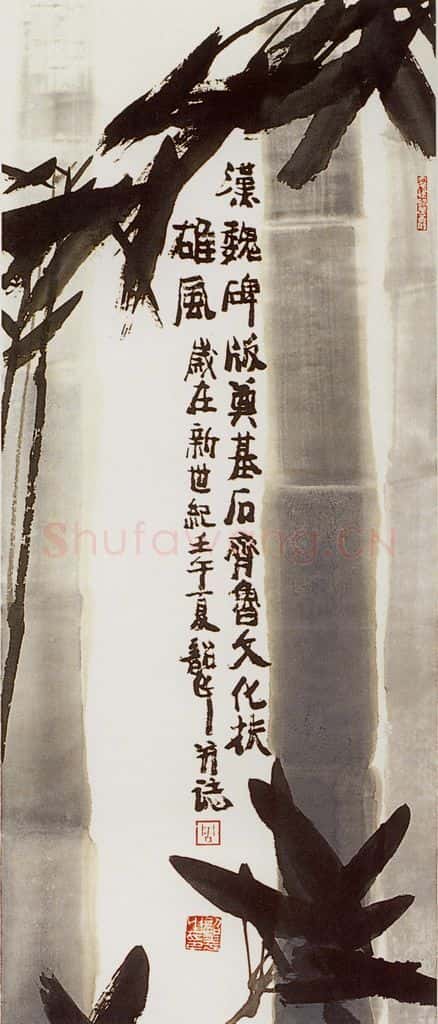 漢魏碑版奠基石齊魯文化扶
雄風 歲在新世紀壬午夏 並誌
Shufawang.CN